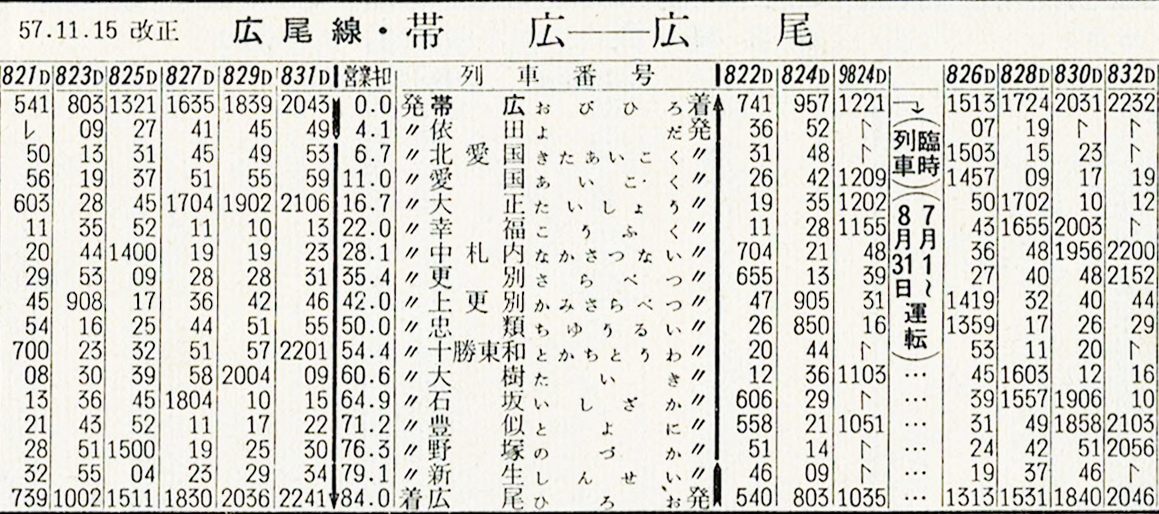 57.11.15 改正 広尾線・帯広――広尾
821D 823D 825D 827D 829D 831D 営業キロ 列車番号 822D 824D 9824D 826D 828D 830D 832D
541 803 1321 1635 1839 2043 0.0 発 帯広 おびひろ 着 741 957 1221 1513 1724 2031 2232
レ 09 27 41 45 49 4.1 〃 依田 よだ 発 36 52 ↾ 07 19 ↾ ↾
50 13 31 45 49 53 6.7 〃 北愛国 きたあいこく 〃 31 48 ↾ 1503 15 23 ↾
56 19 37 51 55 59 11.0 〃 愛国 あいこく 〃 26 42 1209 1457 09 17 19
603 28 45 1704 1902 2106 16.7 〃 大正 たいしょう 〃 19 35 1202 50 1702 10 12
11 35 52 11 10 13 22.0 〃 幸福 こうふく 〃 11 28 1155 43 1655 2003 ↾
20 44 1400 19 19 23 28.1 〃 中札内 なかさつない 〃 704 21 48 36 48 1956 2200
29 53 09 28 28 31 35.4 〃 更別 さらべつ 〃 655 13 39 27 40 48 2152
45 908 17 36 42 46 42.0 〃 上更別 かみさらべつ 〃 47 905 31 1419 32 40 44
54 16 25 44 51 55 50.0 〃 忠類 ちゆうるい 〃 26 850 16 1359 17 26 29
700 23 32 51 57 2201 54.4 〃 十勝東和 とかちとうわ 〃 20 44 ↾ 53 11 20 ↾
08 30 39 58 2004 09 60.6 〃 大樹 たいき 〃 12 36 1103 … 45 1603 12 16
13 36 45 1804 10 15 64.9 〃 石坂 いしざか 〃 606 29 ↾ … 39 1557 1906 10
21 43 52 11 17 22 71.2 〃 豊似 とよに 〃 558 21 1051 … 31 49 1858 2103
28 51 1500 19 25 30 76.3 〃 野塚 のづか 〃 51 14 ↾ … 24 42 51 2056
32 55 04 23 29 34 79.1 〃 新生 しんせい 〃 46 09 ↾ … 19 37 46 ↾
739 1002 1511 1830 2036 2241 84.0 着 広尾 ひろお 発 540 803 1035 … 1313 1531 1840 2046
(臨時列車)
(7月1〜8月31日運転)